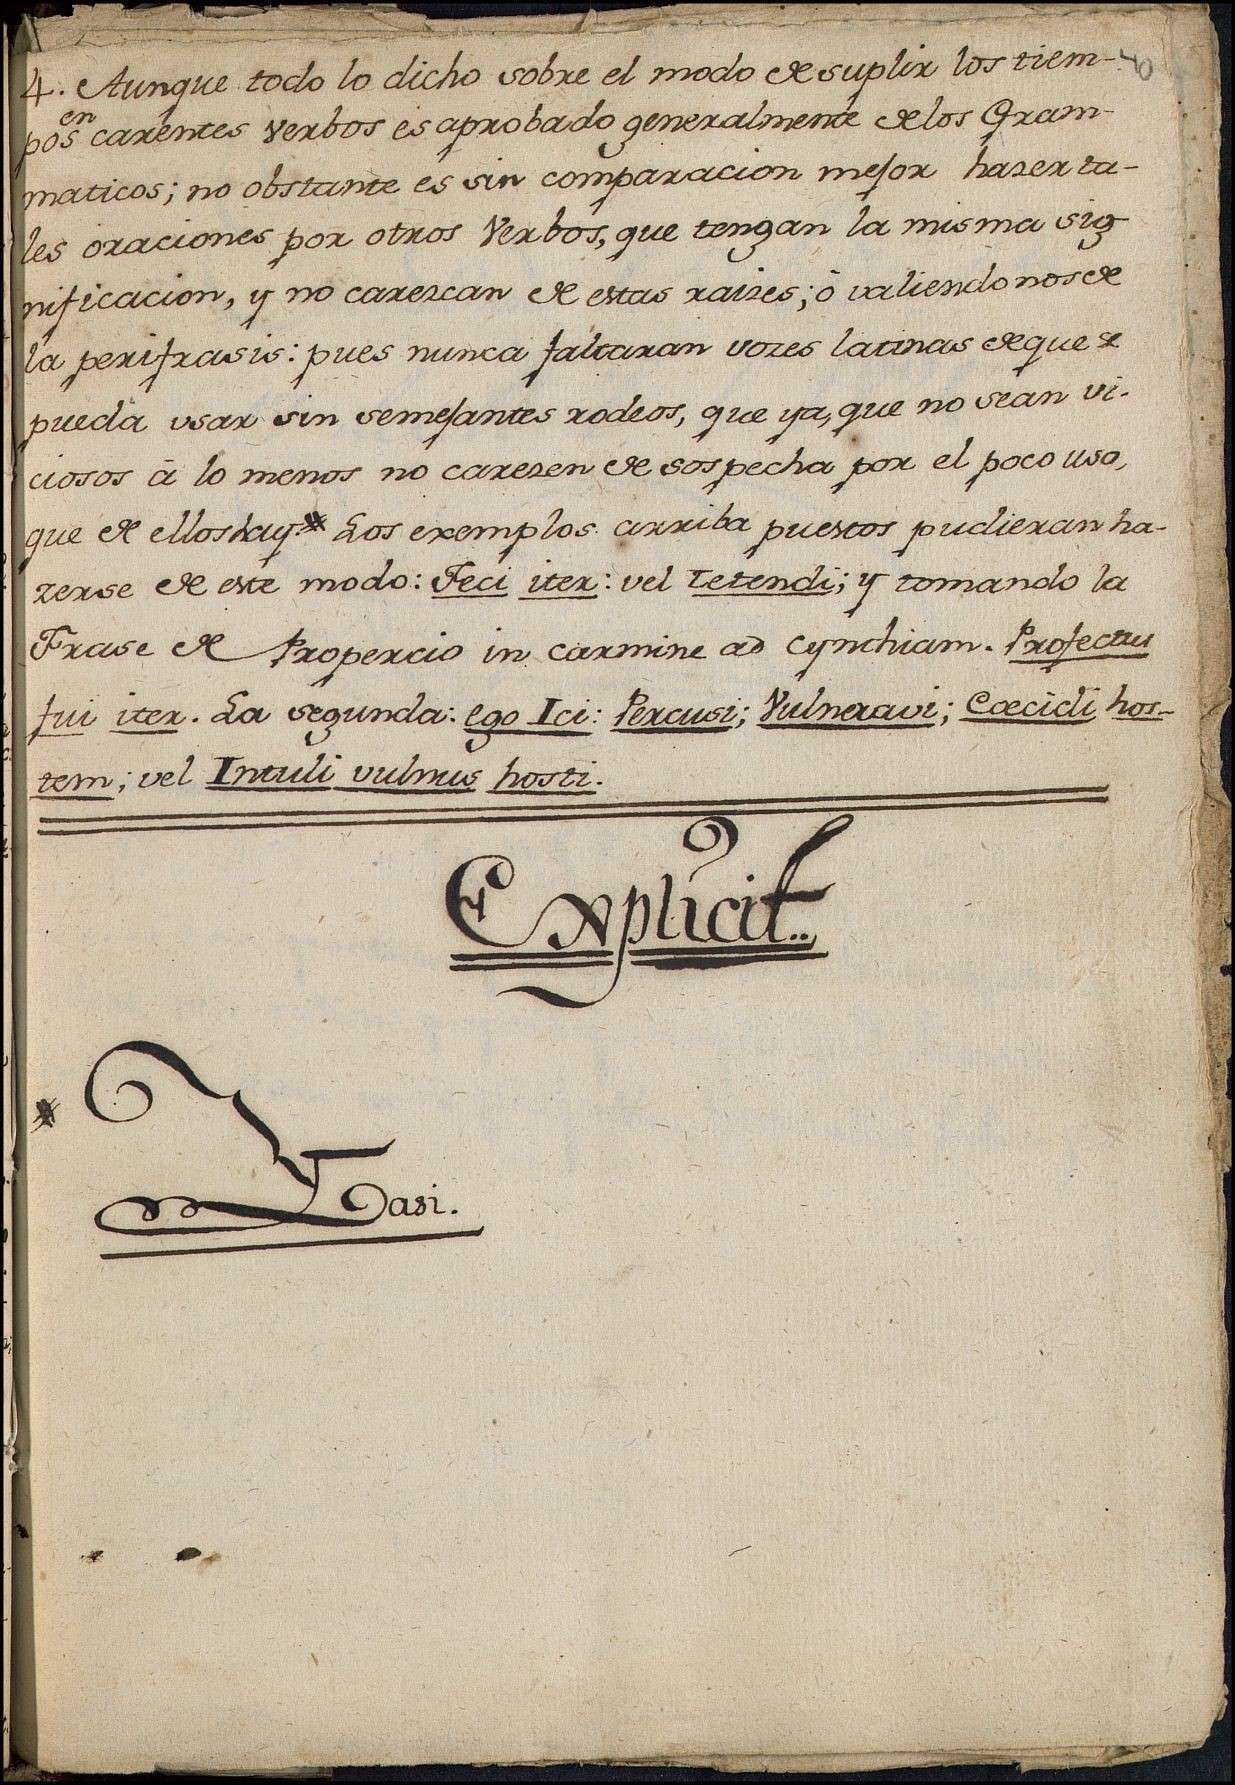 4. Aunque todo lo dicho sobre el modo de suplir los tiem-
en
pos carentes Verbos es aprobado generalmente de los Gram-
maticos; no obstante es sin comparacion mejor hazer ta-
les oraciones por otros Verbos, que tengan la misma sig
nificacion, y no carezcan de estas raizes; ò valiendonos de
la perifrasis: pues nunca faltaran vozes latinas de que se
pueda usar sin semejantes rodeos, que ya, que no sean vi-
ciosos à lo menos no carezen de sospecha por el poco uso,
que de ellos hay. Los exemplos arriba puestos pudieran ha-
zerse de este modo: Feci iter: vel Tetendi; y tomando la
Frase de Propercio in carmine ad Cynthiam. Profectus
fui iter. La segunda: ego Ici: Percusi; Vulneravi; Cœcidi hos-
tem; vel Intuli vulnus hosti.
Explicit..